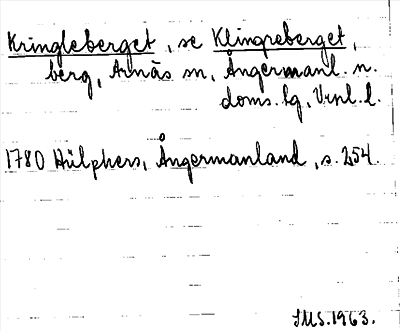 Kringleberget, se Klingreberget,
berg, Arnäs sn, Ångermanl. n.
doms. lg, Vnl. l.
1780 Hülphers, Ångermanland, s. 254.
IMS. 1963.